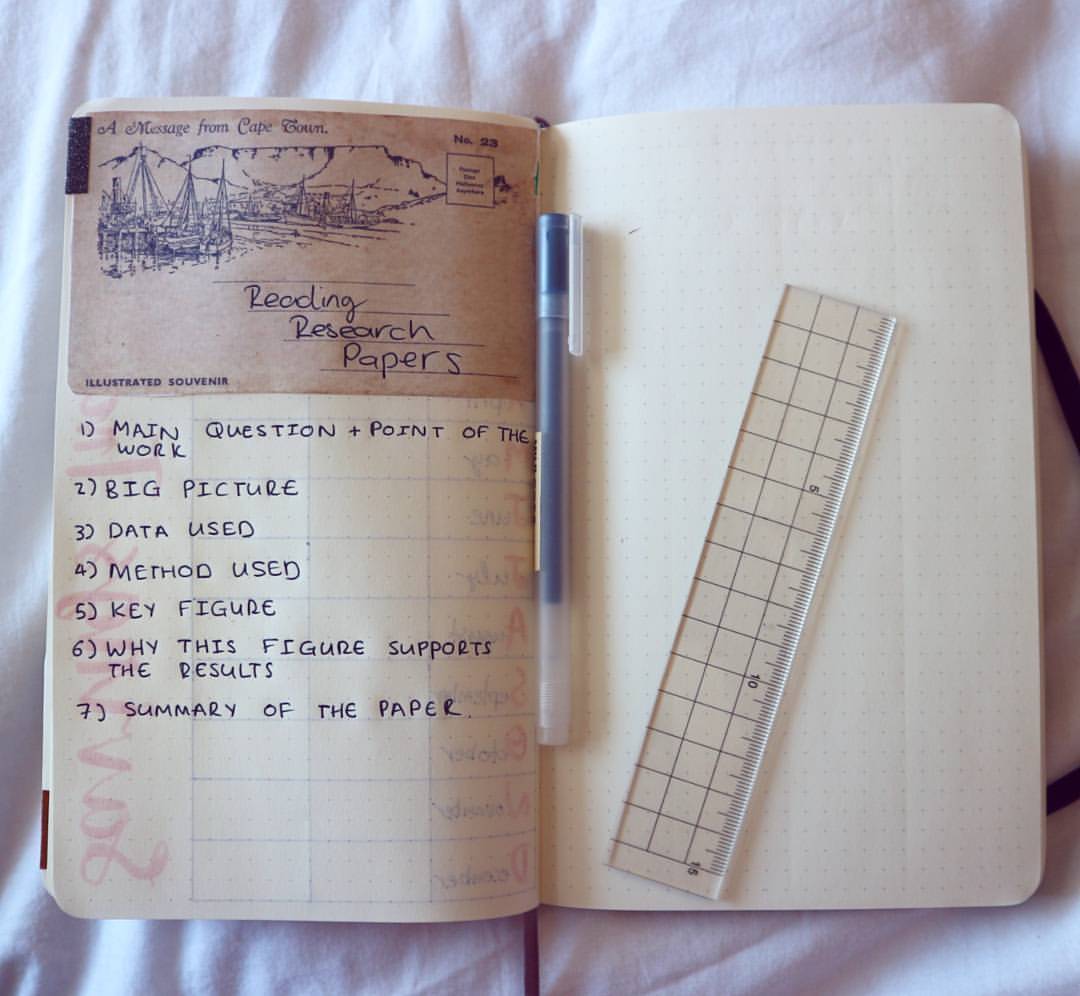 A Message from Cape Town.
No. 23
Reading
Research
Papers
ILLUSTRATED SOUVENIR
1) MAIN QUESTION + POINT OF THE
WORK
2) BIG PICTURE
3) DATA USED
4) METHOD USED
5) KEY FIGURE
6) WHY THIS FIGURE SUPPORTS
THE RESULTS
7) SUMMARY OF THE PAPER.
April
May
June
July
August
September
October
November
December
5
10
15